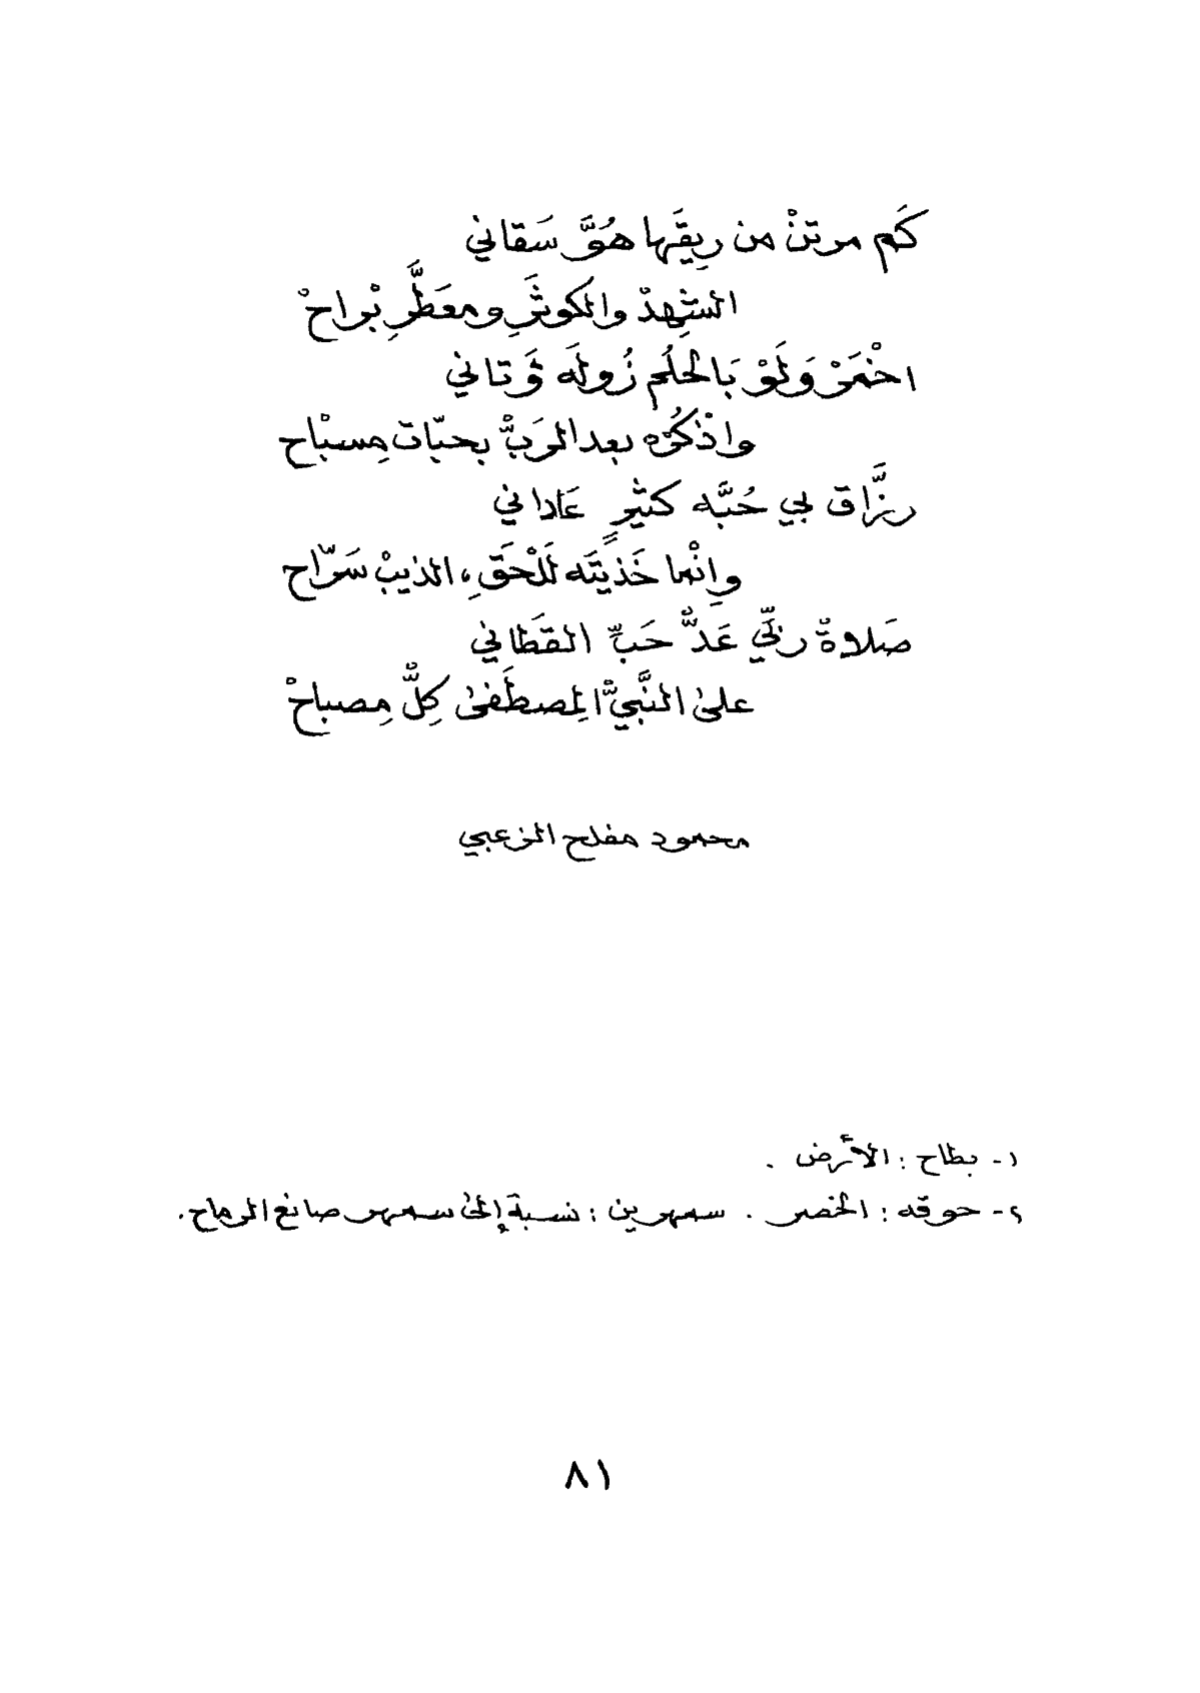 كَم مرتنْ من رِيقَها هُوَّ سَقاني
الشِهدْ والكوثَرِ ومعَطَّرِ بْراحْ
اخْمَرْ وَلَوْ بَالحلُم زُولَه ثَوَتاني
واذْكُرْه بعد الرَبّْ بحبّات مِسبْاح
رزَّاق لجي حُبَّه كثيرٍ عَاداني
وِانْما خَذيتَه لَلْحَقِ، الذيبْ سَرّاح
صَلاةْ ربّي عَدّْ حَبِّ القَطاني
على النَّبيّْ المِصطَفى كِلّْ مِصباحْ
محمود مفلح الزعبي
١- بطاح : الأرض .
٢- حوقه : الخصر . سمهرين : نسبة إلى سمهر صانع الرماح .
٨١